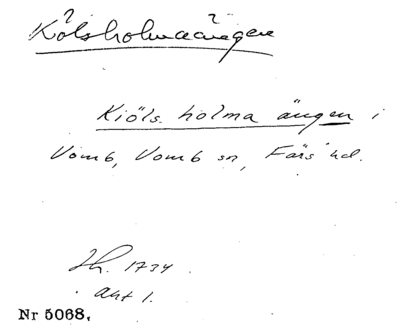 Kölsholmaängen
Kiöls holma ängen i
Vomb, Vomb sn, Färs hd.
1734
akt 1.
Nr 5068.